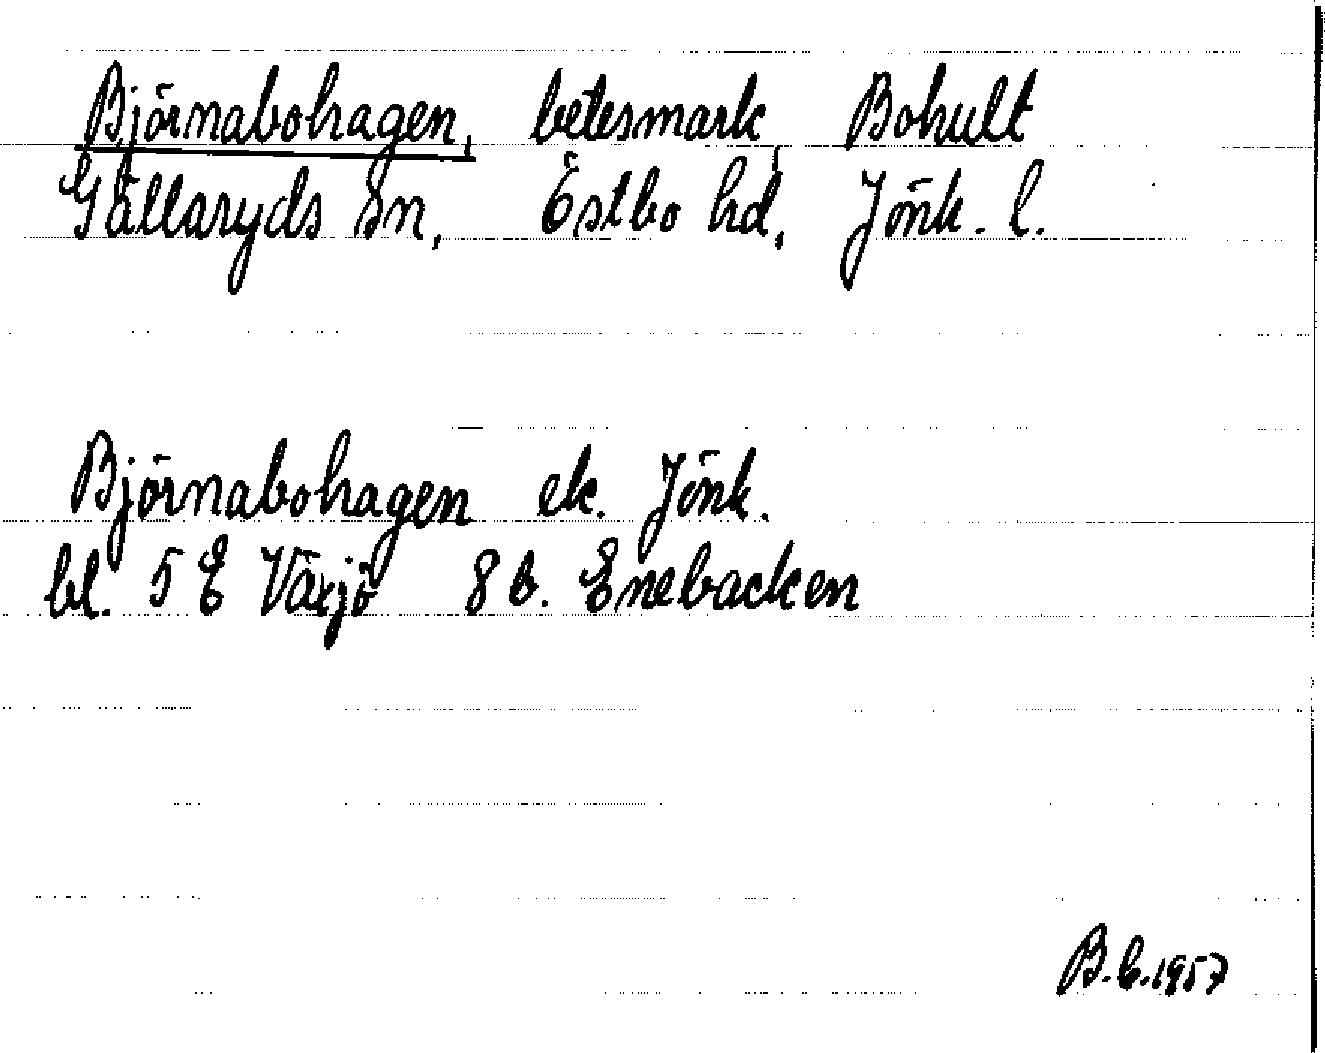 Björnabohagen, betesmark, Bohult
Gällaryds sn, Östbo hd, Jönk. l.
Björnabohagen ek. Jönk.
bl. 5 E Växjö 8 b. Enebacken
B.C.1957